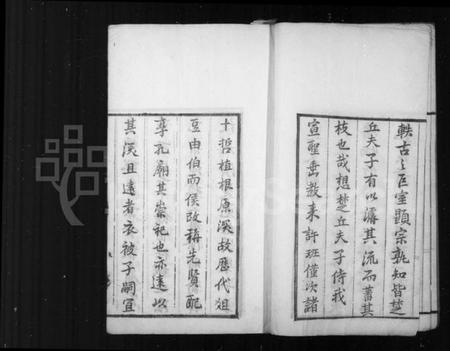 軼古之巨室顯宗孰知皆楚
丘夫子有以濬其流而蓄其
枝也哉想楚丘夫子侍我
宣聖垂教来許班僅次諸
十哲植根原深故歷代俎
豆由伯而侯改稱先賢配
享孔廟其崇祀也亦遠以
其深且遠者衣被子嗣宜